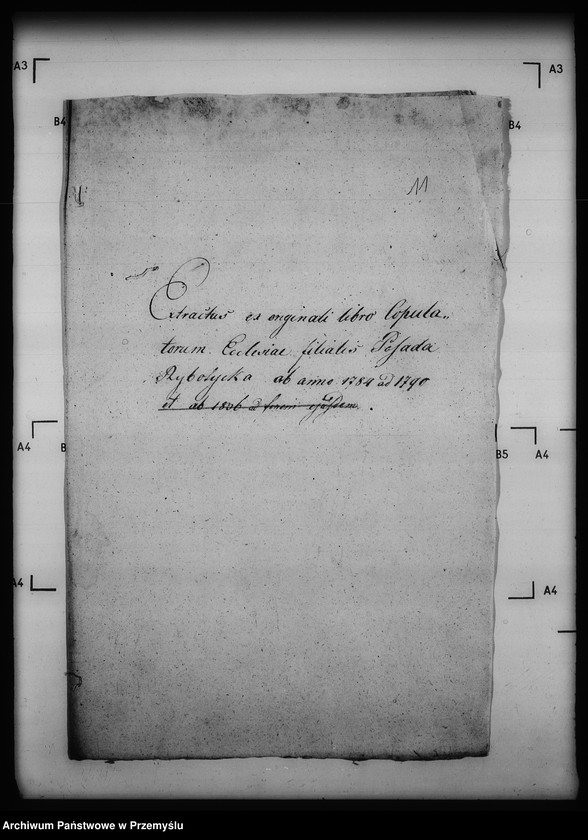 A3
A3
B4
B4
11
Extractus ex originali libro Copula„
torum Ecclesiae filialis Posada
Rybotycka ab anno 1784 ad 1790
et ab 1836 ad finem ejusdem.
A4
B
B5
A4
A4
A4
Archiwum Państwowe w Przemyślu